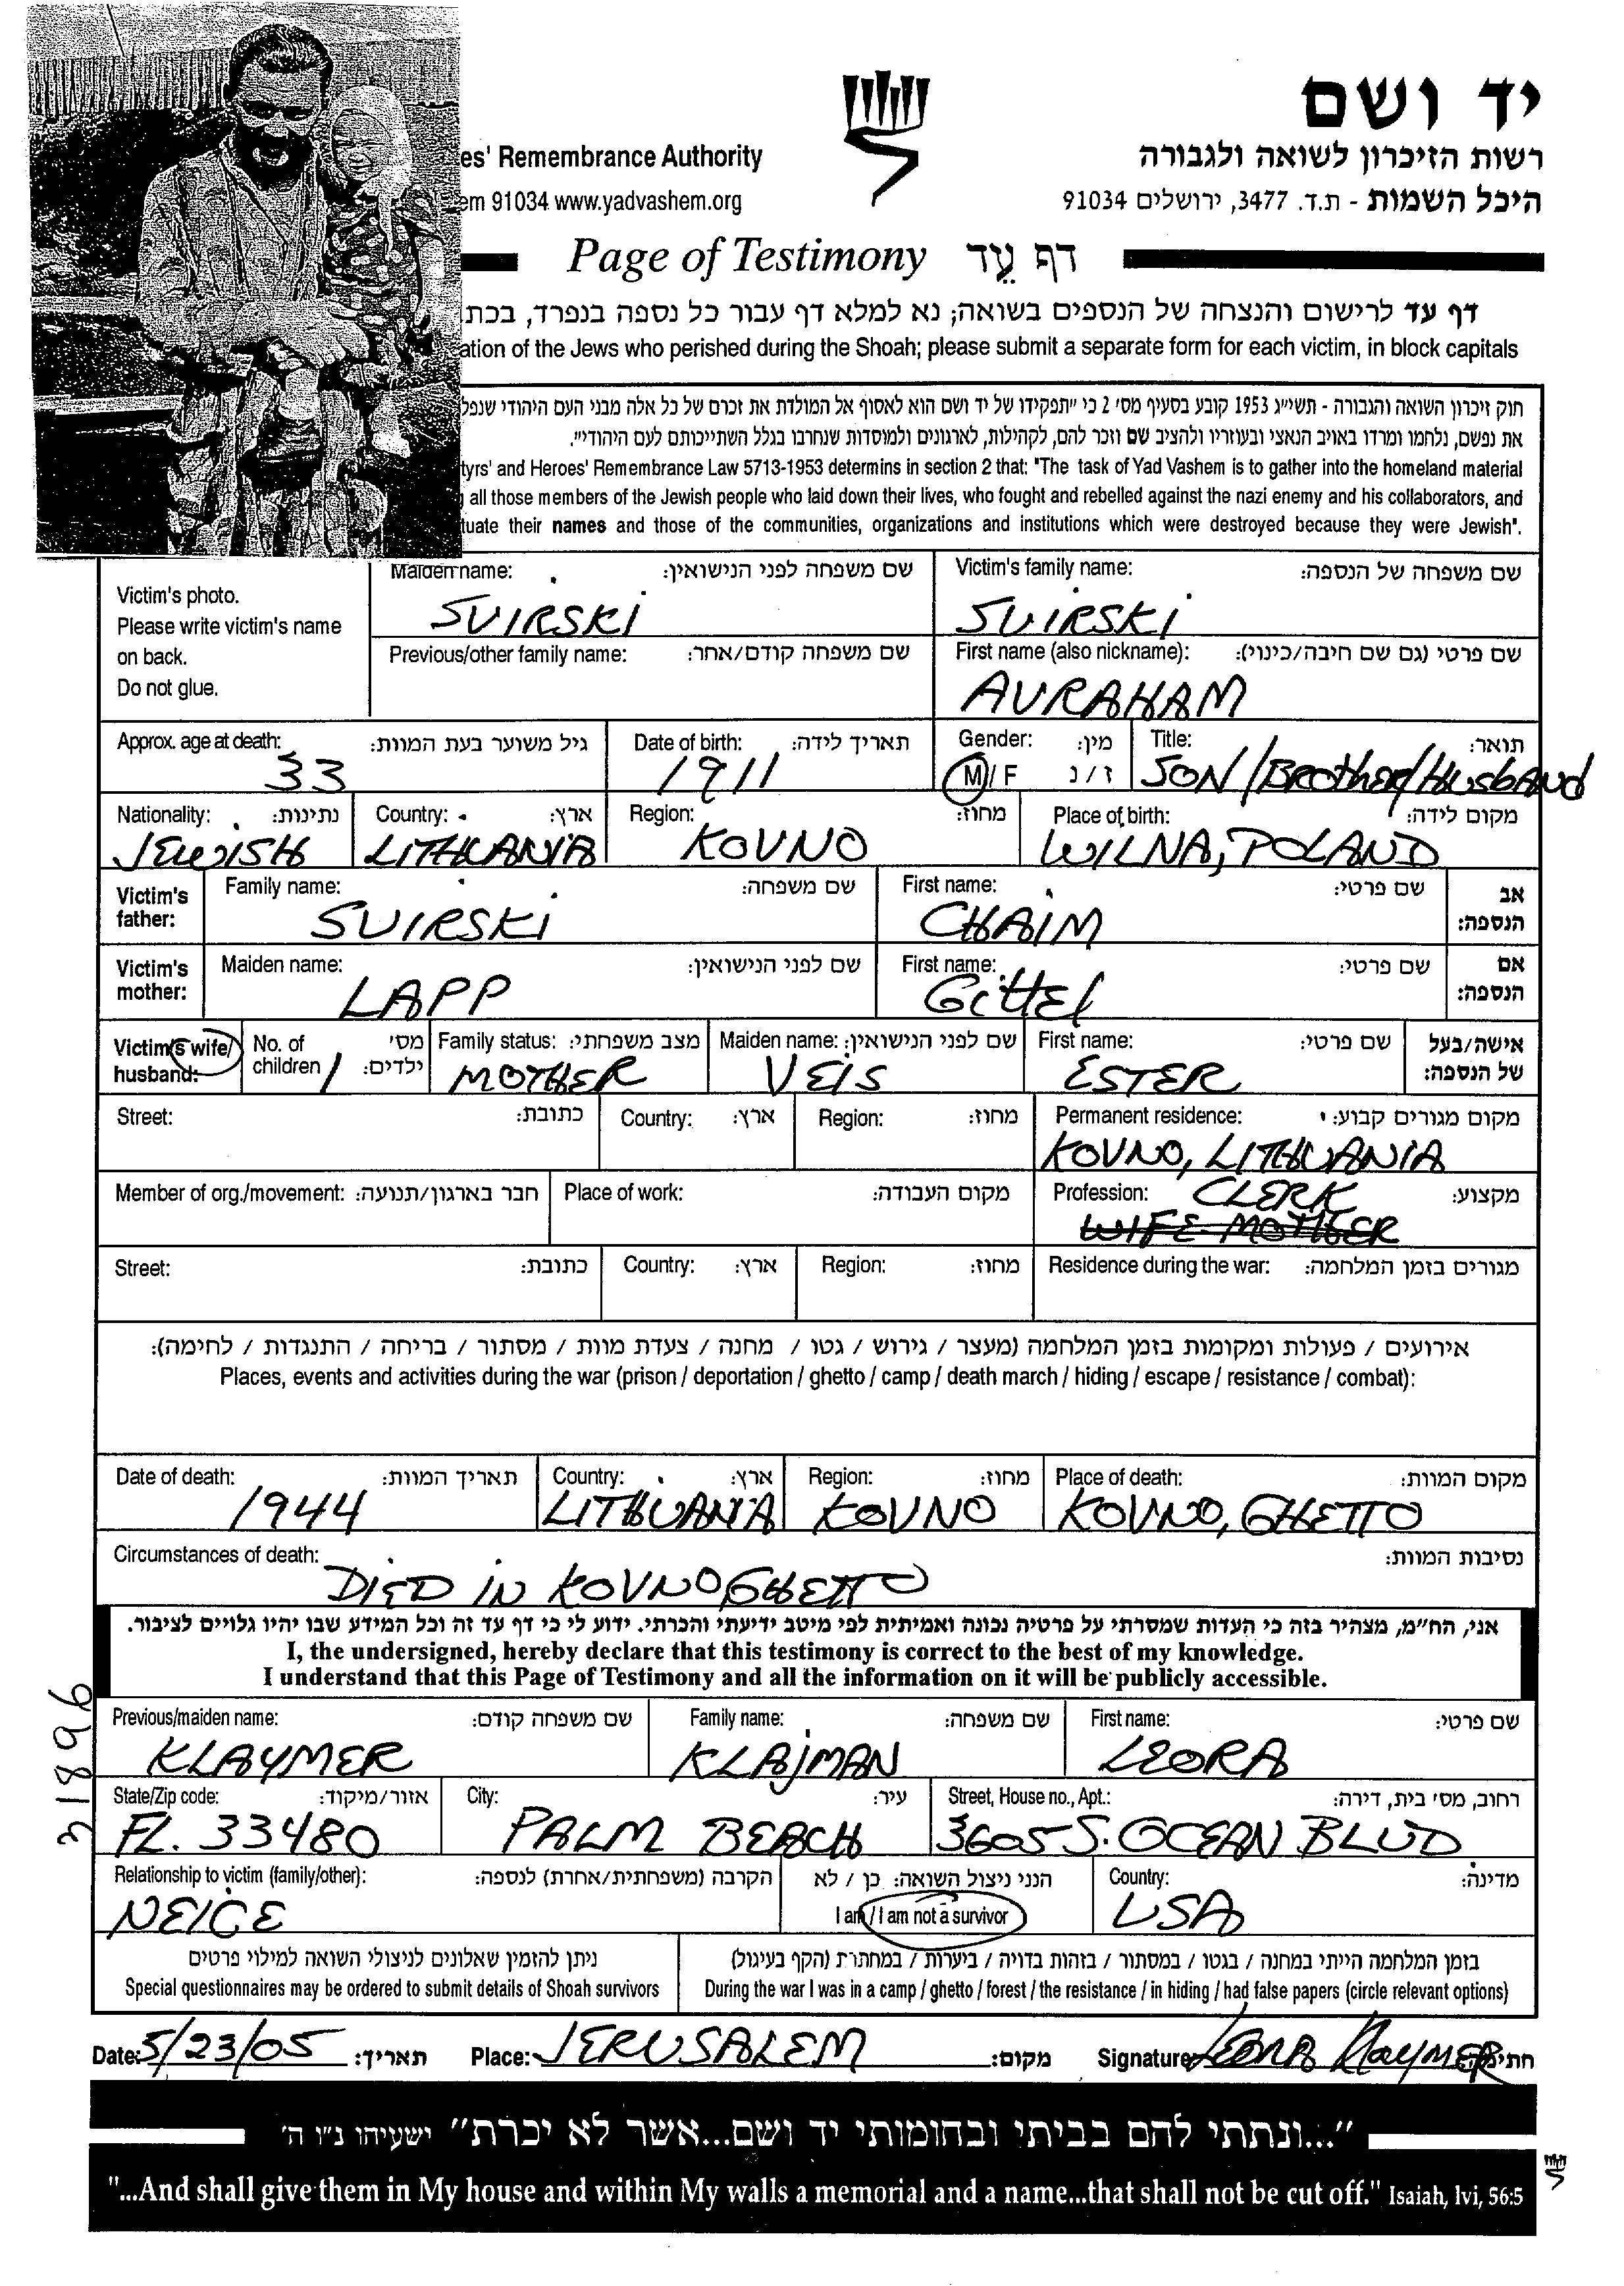 יד ושם
es' Remembrance Authority
רשות הזיכרון לשואה ולגבורה
em 91034 www.yadvashem.org
היכל השמות - ת.ד. 3477, ירושלים 91034
Page of Testimony דף עֵד
דף עד לרישום והנצחה של הנספים בשואה; נא למלא דף עבור כל נספה בנפרד, בכת
ation of the Jews who perished during the Shoah; please submit a separate form for each victim, in block capitals
חוק זיכרון השואה והגבורה - תשי״ג 1953 קובע בסעיף מס׳ 2 כי ״תפקידו של יד ושם הוא לאסוף אל המולדת את זכרם של כל אלה מבני העם היהודי שנפל
את נפשם, נלחמו ומרדו באויב הנאצי ובעוזריו ולהציב שם וזכר להם, לקהילות, לארגונים ולמוסדות שנחרבו בגלל השתייכותם לעם היהודי״.
tyrs' and Heroes' Remembrance Law 5713-1953 determins in section 2 that: "The task of Yad Vashem is to gather into the homeland material
all those members of the Jewish people who laid down their lives, who fought and rebelled against the nazi enemy and his collaborators, and
tuate their names and those of the communities, organizations and institutions which were destroyed because they were Jewish".
Victim's photo.
Please write victim's name
on back.
Do not glue.
Maiden name: שם משפחה לפני הנישואין:
SVIRSKI
Victim's family name: שם משפחה של הנספה:
SVIRSKI
Previous/other family name: שם משפחה קודם/אחר:
First name (also nickname): שם פרטי (גם שם חיבה/כינוי):
AVRAHAM
Approx. age at death: גיל משוער בעת המוות:
33
Date of birth: תאריך לידה:
1911
Gender: מין:
M/ F ז / נ
Title: תואר:
SON/BrothER/HusbAND
Nationality: נתינות:
JEWISH
Country: ארץ:
LITHUANIA
Region: מחוז:
KOVNO
Place of birth: מקום לידה:
WILNA, POLAND
Victim's father:
Family name: שם משפחה:
SVIRSKI
First name: שם פרטי:
CHAIM
אב הנספה:
Victim's mother:
Maiden name: שם לפני הנישואין:
LAPP
First name: שם פרטי:
GittEl
אם הנספה:
Victim's wife/ husband:
No. of children מס׳ ילדים:
1
Family status: מצב משפחתי:
MOTHER
Maiden name: שם לפני הנישואין:
VEIS
First name: שם פרטי:
ESTER
אישה/בעל של הנספה:
Street: כתובת:
Country: ארץ:
Region: מחוז:
Permanent residence: מקום מגורים קבוע:
KOVNO, LITHUANIA
Member of org./movement: חבר בארגון/תנועה:
Place of work: מקום העבודה:
Profession: מקצוע:
CLERK
WIFE MOTHER
Street: כתובת:
Country: ארץ:
Region: מחוז:
Residence during the war: מגורים בזמן המלחמה:
אירועים / פעולות ומקומות בזמן המלחמה (מעצר / גירוש / גטו / מחנה / צעדת מוות / מסתור / בריחה / התנגדות / לחימה):
Places, events and activities during the war (prison / deportation / ghetto / camp / death march / hiding / escape / resistance / combat):
Date of death: תאריך המוות:
1944
Country: ארץ:
LITHUANIA
Region: מחוז:
KOVNO
Place of death: מקום המוות:
KOVNO, GHETTO
Circumstances of death: נסיבות המוות:
DIED IN KOVNO GHETTO
אני, הח״מ, מצהיר בזה כי העדות שמסרתי על פרטיה נכונה ואמיתית לפי מיטב ידיעתי והכרתי. ידוע לי כי דף עד זה וכל המידע שבו יהיו גלויים לציבור.
I, the undersigned, hereby declare that this testimony is correct to the best of my knowledge.
I understand that this Page of Testimony and all the information on it will be publicly accessible.
31896
Previous/maiden name: שם משפחה קודם:
KLAYMER
Family name: שם משפחה:
KLAJMAN
First name: שם פרטי:
LEORA
State/Zip code: אזור/מיקוד:
FL. 33480
City: עיר:
PALM BEACH
Street, House no., Apt.: רחוב, מס׳ בית, דירה:
3605 S. OCEAN BLVD
Relationship to victim (family/other): הקרבה (משפחתית/אחרת) לנספה:
NEICE
הנני ניצול השואה: כן / לא
I am / I am not a survivor
Country: מדינה:
USA
ניתן להזמין שאלונים לניצולי השואה למילוי פרטים
Special questionnaires may be ordered to submit details of Shoah survivors
בזמן המלחמה הייתי במחנה / בגטו / במסתור / בזהות בדויה / ביערות / במחתרת (הקף בעיגול)
During the war I was in a camp / ghetto / forest / the resistance / in hiding / had false papers (circle relevant options)
Date: 5/23/05 תאריך: Place: JERUSALEM מקום: Signature LEORA KlAYMER חתימה
״...ונתתי להם בביתי ובחומותי יד ושם...אשר לא יכרת״ ישעיהו נ״ו ה׳
"...And shall give them in My house and within My walls a memorial and a name...that shall not be cut off." Isaiah, lvi, 56:5